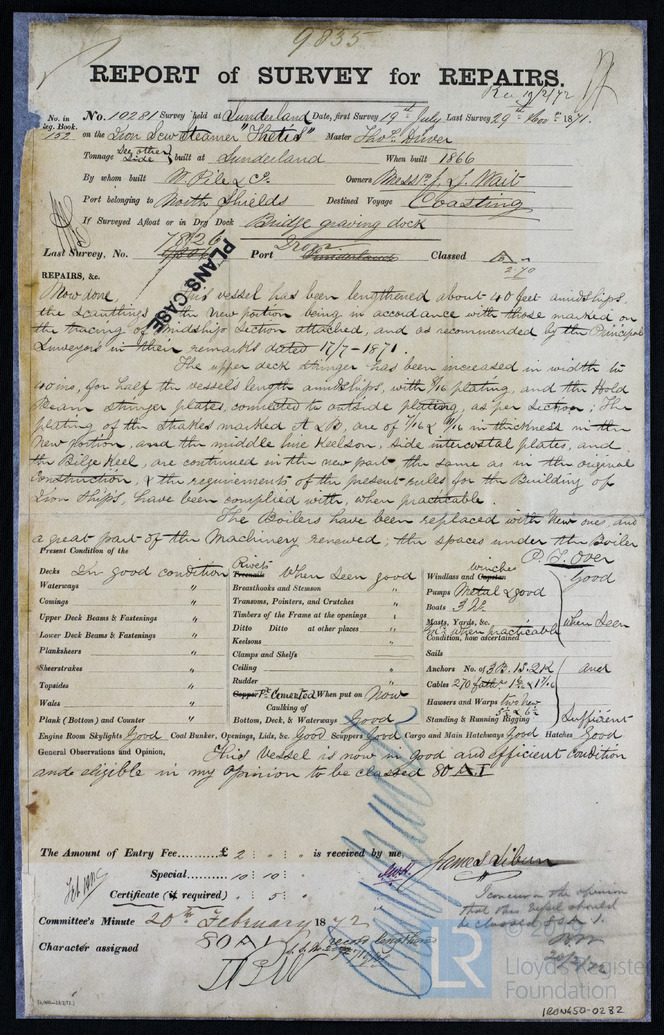 9835
REPORT of SURVEY for REPAIRS.
Rec 19/2/72
No. in Reg. Book. 132
No. 10281 Survey held at Sunderland Date, first Survey 19th July Last Survey 29th Novr 1871.
on the Iron Screw Steamer "Thetis" Master Thos. Driver
Tonnage See other Side built at Sunderland When built 1866
By whom built W. Pile & Co. Owners Messrs J. Wait
Port belonging to North Shields Destined Voyage Coasting
If Surveyed Afloat or in Dry Dock Bridge graving dock
Last Survey, No. 7826 Port Iron Sunderland Classed
2.70
PLANS CASE
REPAIRS, &c.
Now done, This vessel has been lengthened about 40 feet amidships,
the Scantlings of the New portion being in accordance with those marked on
the tracing of Midship section attached, and as recommended by the Principal
Surveyors in their remarks dated 17/7-1871.
The upper deck stringer has been increased in width to
40 ins, for half the vessel's length amidships, with 8/16 plating, and the Hold
Beam stringer plates, connected to outside plating, as per Section; The
plating of the strakes marked A & B, are of 9/16 & 10/16 in thickness in the
New portion, and the middle line Keelson, side intercostal plates, and
the Bilge Keel, are continued in the new part, the same as in the original
Construction, & the requirements of the present rules for the Building of
Iron Ships, have been complied with, when practicable.
The Boilers have been replaced with New ones, and
a great part of the Machinery renewed; the spaces under the Boiler
P. T. Over
Present Condition of the
Decks In good condition
Waterways "
Comings "
Upper Deck Beams & Fastenings "
Lower Deck Beams & Fastenings "
Planksheers "
Sheerstrakes "
Topsides "
Wales "
Plank (Bottom) and Counter "
Rivets Treenails When seen good
Breasthooks and Stemson "
Transoms, Pointers, and Crutches "
Timbers of the Frame at the openings "
Ditto Ditto at other places "
Keelsons "
Clamps and Shelfs "
Ceiling "
Rudder "
Copper Cemented When put on Now
Caulking of
Bottom, Deck, & Waterways Good
Windlass and Capstan winches Good
Pumps Metal & Good
Boats 3
Masts, Yards, &c.
Condition, how ascertained when practicable when seen
Sails
Anchors No. of 3B. 1S. 2K
Cables 270 fath
Hawsers and Warps two new
Standing & Running Rigging Sufficient
Engine Room Skylights Good Coal Bunker, Openings, Lids, &c. Good Scuppers Good Cargo and Main Hatchways Good Hatches Good
General Observations and Opinion, This Vessel is now in Good and efficient condition
and eligible in my Opinion to be classed 80 A 1
The Amount of Entry Fee..........£ 2 : " : " is received by me,
Special.......... 10 : 10 : "
Certificate (if required) " : 5 : "
James Silun
I concur in the opinion
that this Vessel should
be classed 80 A 1.
20/2/72
Committee's Minute 20th February 1872
Character assigned 80 A 1
record lengthened
LR
Lloyd's Register
Foundation
IRON450-0282